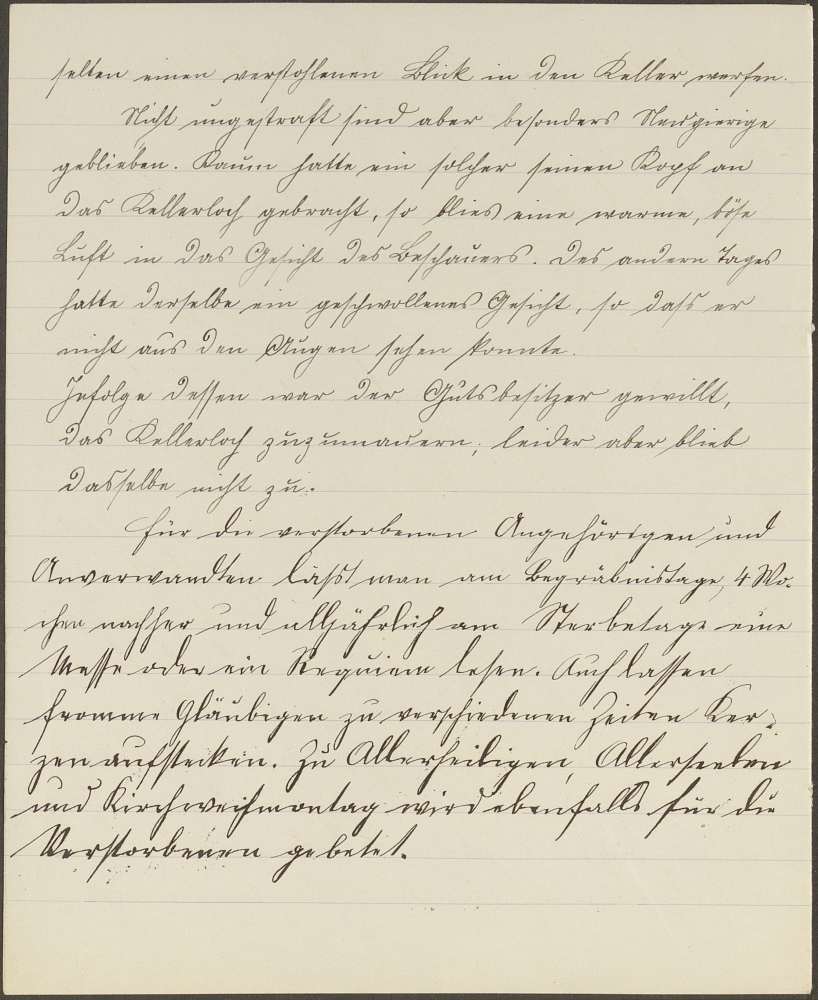 selten einen verstohlenen Blick in den Keller werfen.
Nicht ungestraft sind aber besonders Neugierige
geblieben. Kaum hatte ein solcher seinen Kopf an
das Kellerloch gebracht, so blies eine warme, böse
Luft in das Gesicht des Beschauers. Des andern Tages
hatte derselbe ein geschwollenes Gesicht, so dass er
nicht aus den Augen sehen konnte.
Infolge dessen war der Gutsbesitzer gewillt,
das Kellerloch zuzumauern; leider aber blieb
dasselbe nicht zu.
Für die verstorbenen Angehörigen und
Anverwandten lässt man am Begräbnistage, 4 Wo-
chen nachher und alljährlich am Sterbetage eine
Messe oder ein Requiem lesen. Auch lassen
fromme Gläubigen zu verschiedenen Zeiten Ker-
zen aufstecken. Zu Allerheiligen, Allerseelen
und Kirchweihmontag wird ebenfalls für die
Verstorbenen gebetet.